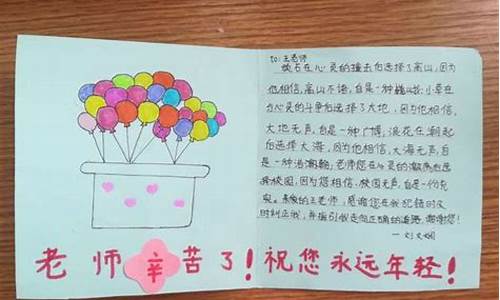 to:王老师
顽石在心灵的撞击后选择了高山,因为
他相信,高山不语,自是一种巍峨;小草在
心灵的斗争后选择了大地,因为他相信,
大地无声,自是一种广博;浪花在潮起
后选择大海,因为他相信,大海无声,自
是一种浩瀚;老师您在心灵的潮涌后选
择校园,因为您相信,校园无声,自是一份充
实。亲爱的王老师,感谢您在我犯错时及
时纠正我,并指引我走向正确的道路,谢谢您!
老师辛苦了!祝您永远年轻!